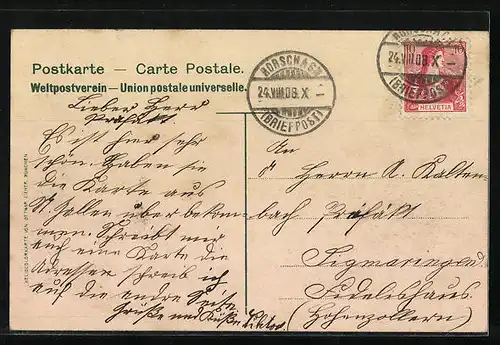 Postkarte — Carte Postale.
Weltpostverein — Union postale universelle.
RORSCHACH
24.VIII.08.X –
(BRIEFPOST)
RORSCHACH
24.VIII.08.X –
(BRIEFPOST)
10 10
HELVETIA
Lieber Herr
Präfäkt.
Es ist hier sehr
schön. Haben sie
die Karte aus
St. Gallen über bekom-
men. Schreibt mir
auch eine Karte die
Adressen schreib ich
auf die andre Seite
Grüße und Küße
An
Herrn A. Kalten-
bach Präfäkt
Sigmaringen
Fidelishaus
(Hohenzollern)